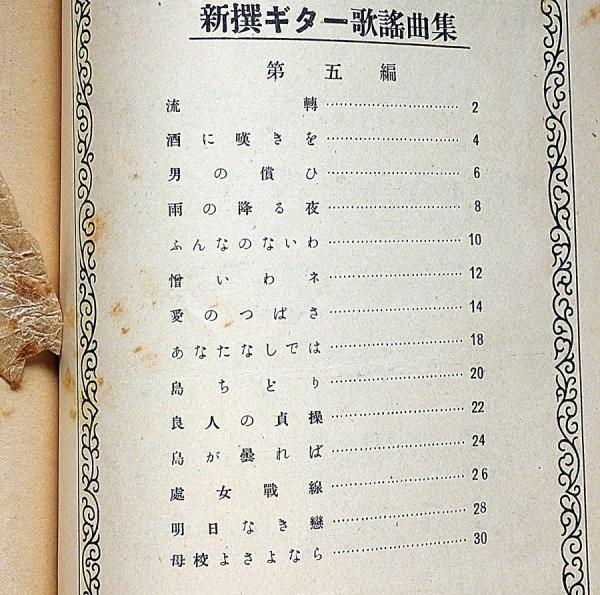 新撰ギター歌謡曲集
第五編
流轉 2
酒に嘆きを 4
男の償ひ 6
雨の降る夜 8
ふんなのないわ 10
憎いわネ 12
愛のつばさ 14
あなたなしでは 18
島ちどり 20
良人の貞操 22
島が曇れば 24
處女戰線 26
明日なき戀 28
母校よさよなら 30